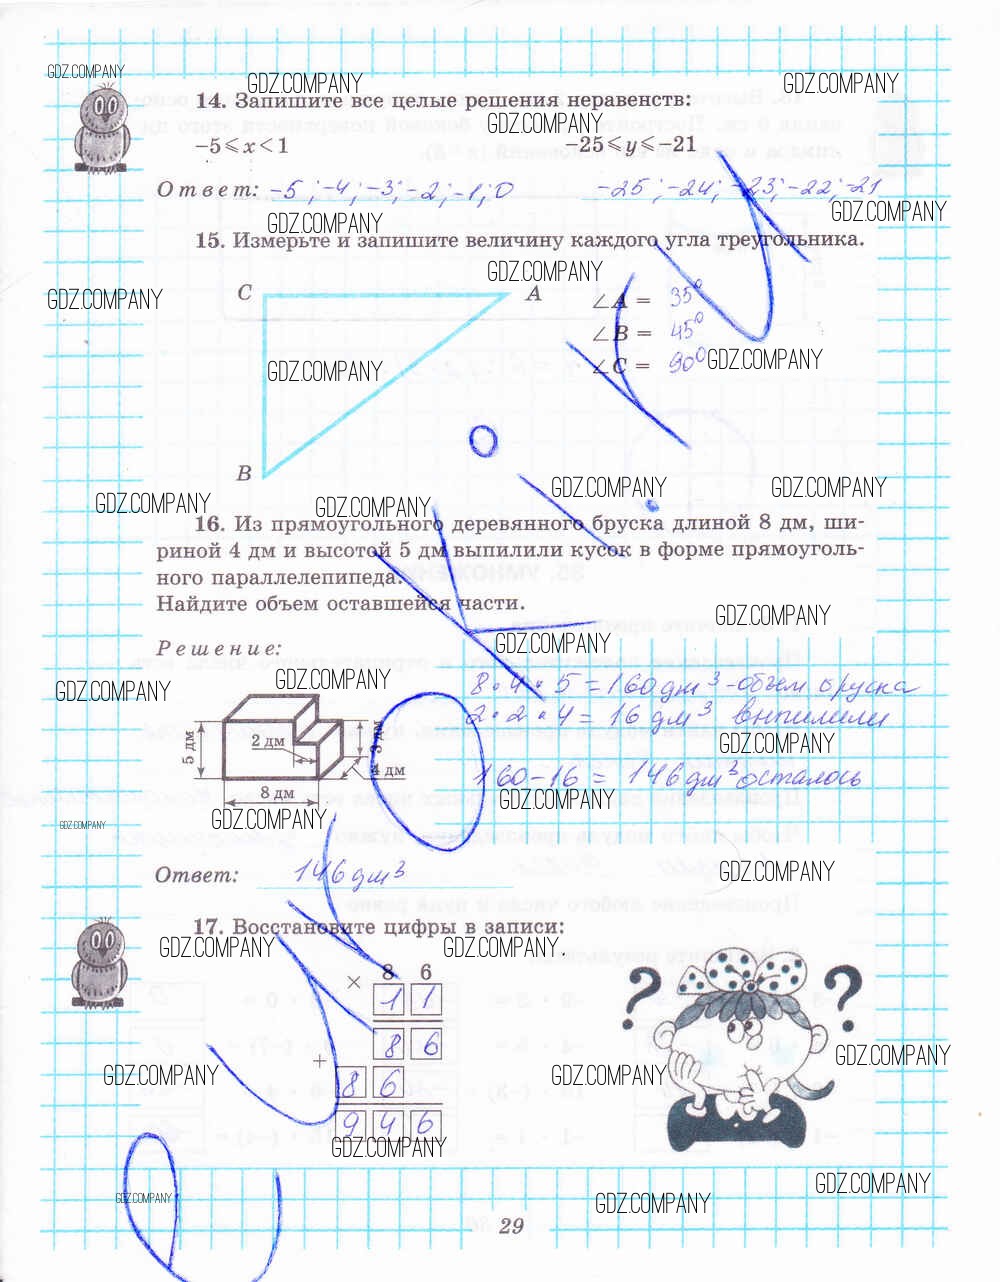 GDZ.COMPANY
GDZ.COMPANY GDZ.COMPANY
14. Запишите все целые решения неравенств:
GDZ.COMPANY
−5⩽x<1 −25⩽y⩽−21
Ответ: -5; -4; -3; -2; -1; 0 -25; -24; -23; -22; -21
GDZ.COMPANY GDZ.COMPANY
15. Измерьте и запишите величину каждого угла треугольника.
GDZ.COMPANY
GDZ.COMPANY
C A ∠A = 35°
∠B = 45°
GDZ.COMPANY ∠C = 90° GDZ.COMPANY
B
GDZ.COMPANY GDZ.COMPANY GDZ.COMPANY GDZ.COMPANY
16. Из прямоугольного деревянного бруска длиной 8 дм, ши-
риной 4 дм и высотой 5 дм выпилили кусок в форме прямоуголь-
ного параллелепипеда.
Найдите объем оставшейся части.
GDZ.COMPANY
Решение: GDZ.COMPANY
GDZ.COMPANY GDZ.COMPANY
8·4·5=160 дм³-объем бруска
2·2·4=16 дм³ выпилили
GDZ.COMPANY
5 дм 2 дм 3 дм
4 дм
160-16=146 дм³ осталось
8 дм
GDZ.COMPANY
GDZ.COMPANY GDZ.COMPANY
Ответ: 146 дм³
GDZ.COMPANY
17. Восстановите цифры в записи:
GDZ.COMPANY GDZ.COMPANY
× 8 6
1 1
8 6
+
8 6
9 4 6
? ?
GDZ.COMPANY
GDZ.COMPANY GDZ.COMPANY
GDZ.COMPANY
GDZ.COMPANY
GDZ.COMPANY
GDZ.COMPANY
29